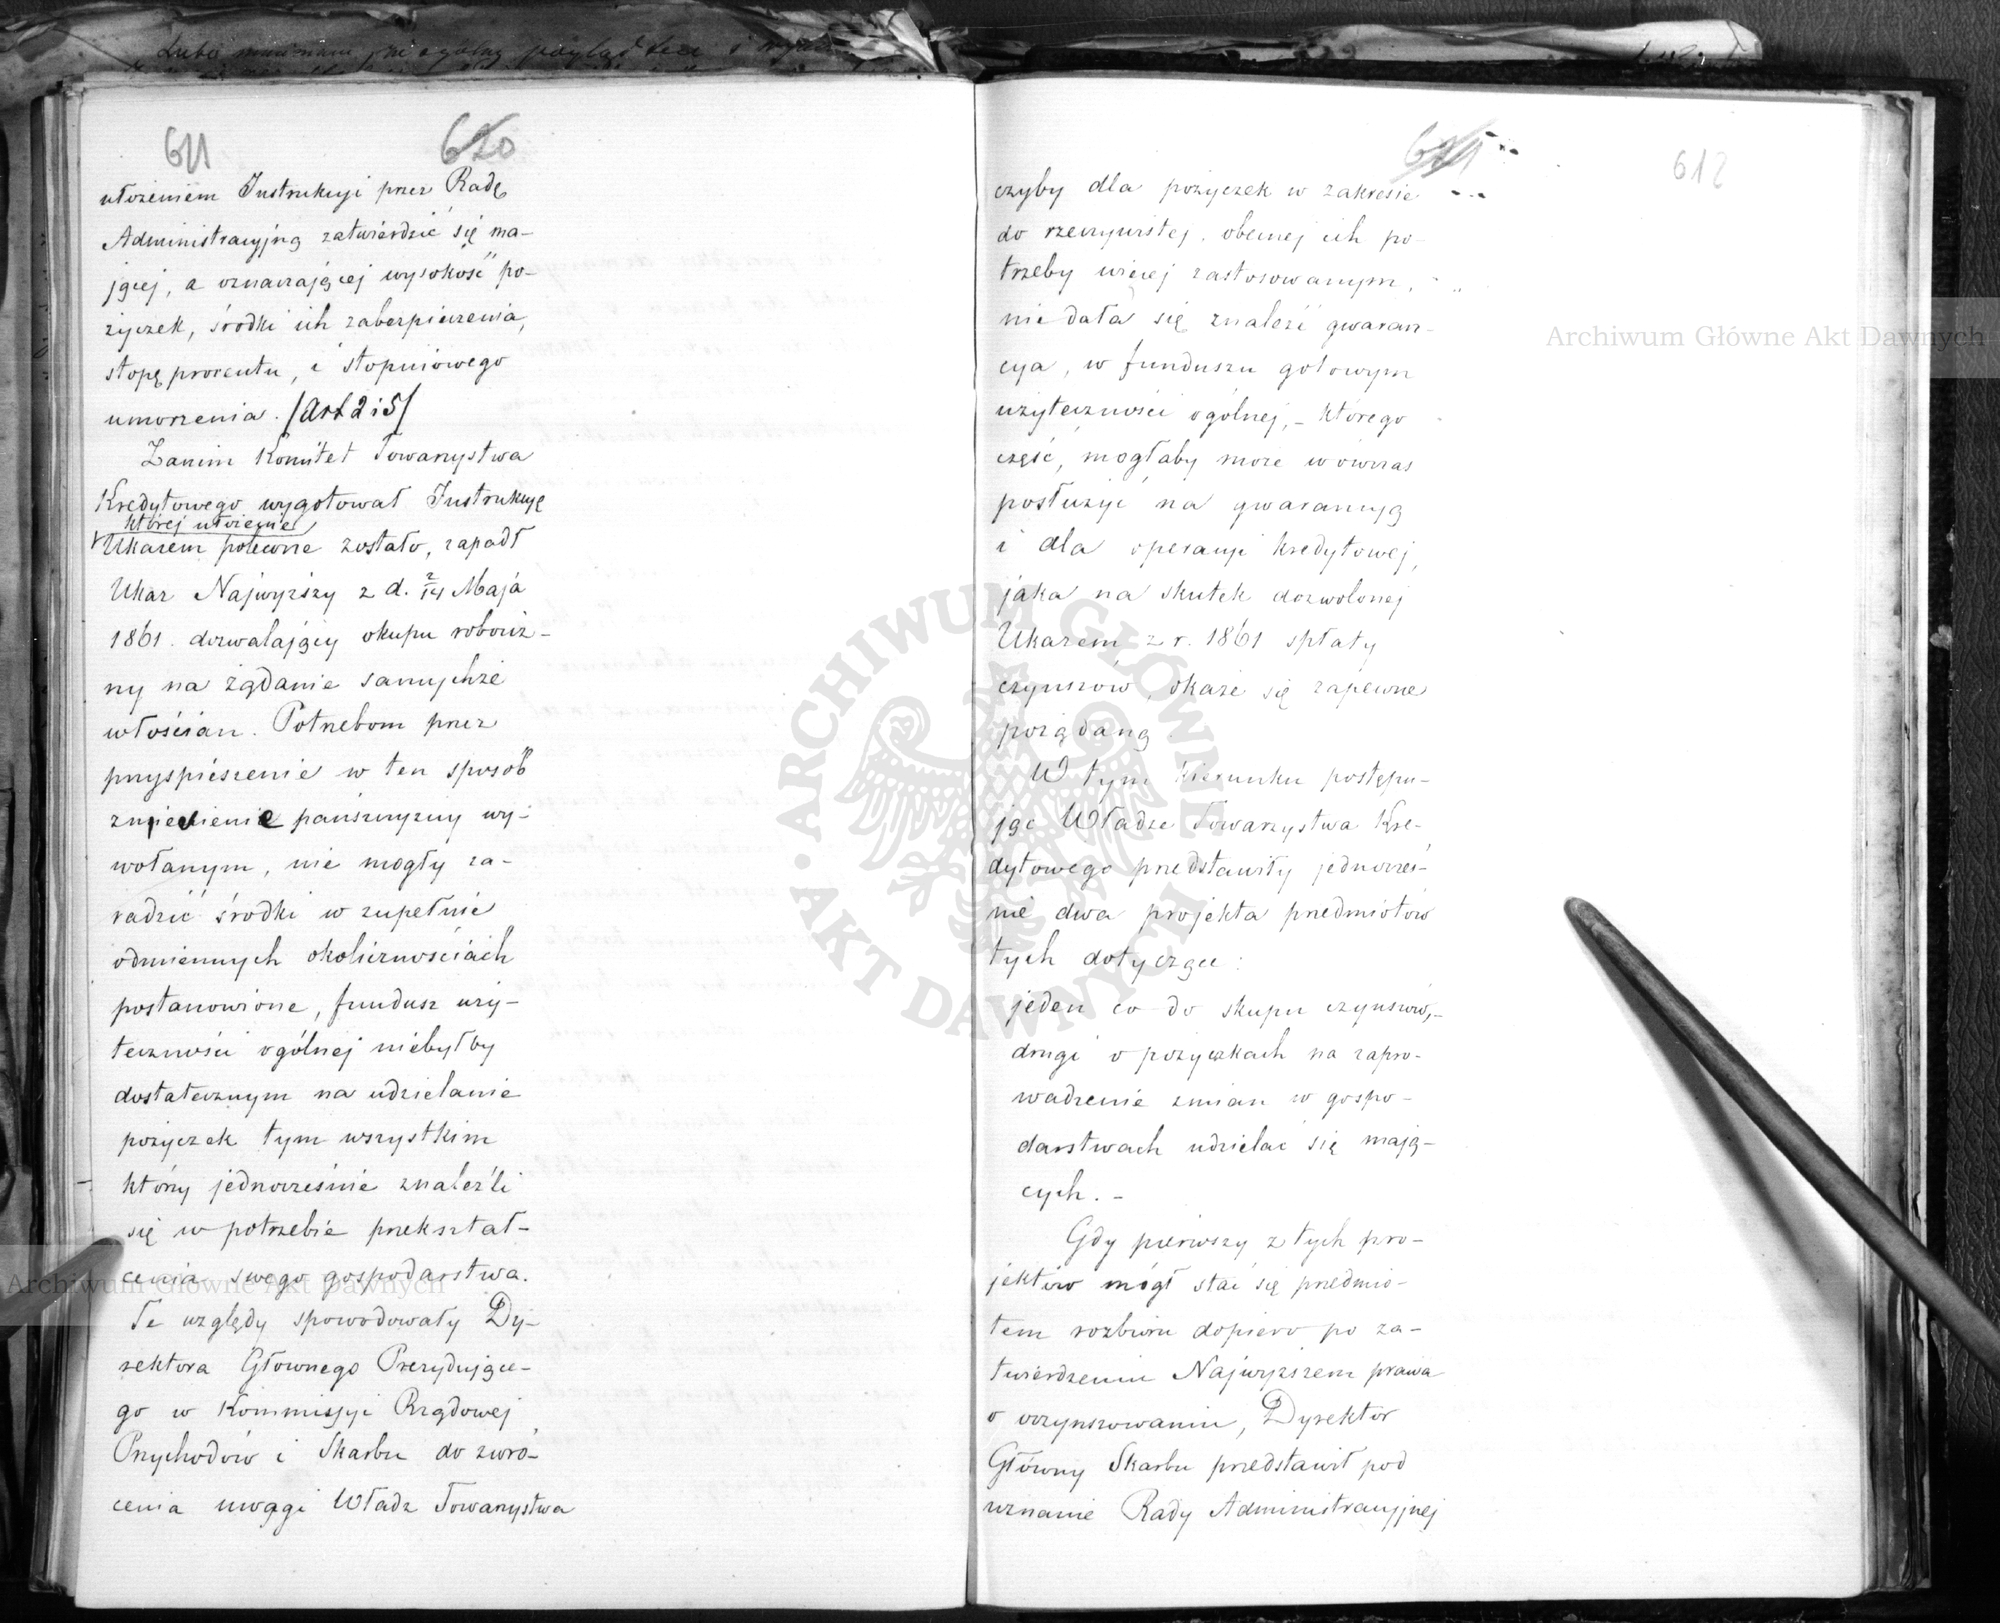 611
620
ułożeniem Instrukcyi przez Radę
Administracyjną zatwierdzić się ma-
jącej, a oznaczającej wysokość po-
życzek, środki ich zabezpieczenia,
stopę procentu, i stopniowego
umorzenia. /Art 2 i 5/
Zanim Komitet Towarzystwa
Kredytowego wygotował Instrukcyę
której ułożenie
Ukazem polecone zostało, zapadł
Ukaz Najwyższy z d. 2/14 Maja
1861. dozwalający okupu robociz-
ny na żądanie samychże
włościan. Potrzebom przez
przyspieszenie w ten sposób
zniesienie pańszczyzny wy-
wołanym, nie mogły za-
radzić środki w zupełnie
odmiennych okolicznościach
postanowione, fundusz uży-
teczności ogólnej niebyłby
dostatecznym na udzielanie
pożyczek tym wszystkim
którzy jednocześnie znaleźli
się w potrzebie przekształ-
cenia swego gospodarstwa.
Te względy spowodowały Dy-
rektora Głównego Prezydujące-
go w Kommissyi Rządowej
Przychodów i Skarbu do zwró-
cenia uwagi Władz Towarzystwa
621
612
czyby dla pożyczek w zakresie
do rzeczywistej, obecnej ich po-
trzeby więcej zastosowanym,
nie dała się znaleźć gwaran-
cya, w funduszu gotowym
użyteczności ogólnej, - którego
część, mogłaby może wówczas
posłużyć na gwarancyą
i dla operacyi kredytowej,
jaka na skutek dozwolonej
Ukazem z r. 1861 spłaty
czynszów, okaże się zapewne
pożądaną.
W tym kierunku postępu-
jąc Władze Towarzystwa Kre-
dytowego przedstawiły jednocześ-
nie dwa projekta przedmiotów
tych dotyczące:
jeden co do skupu czynszów,-
drugi o pożyczkach na zapro-
wadzenie zmian w gospo-
darstwach udzielać się mają-
cych. -
Gdy pierwszy z tych pro-
jektów mógł stać się przedmio-
tem rozbioru dopiero po za-
twierdzeniu Najwyższem prawa
o oczynszowaniu, Dyrektor
Główny Skarbu przedstawił pod
uznanie Rady Administracyjnej
Archiwum Główne Akt Dawnych
Archiwum Główne Akt Dawnych
ARCHIWUM GŁÓWNE • AKT DAWNYCH •